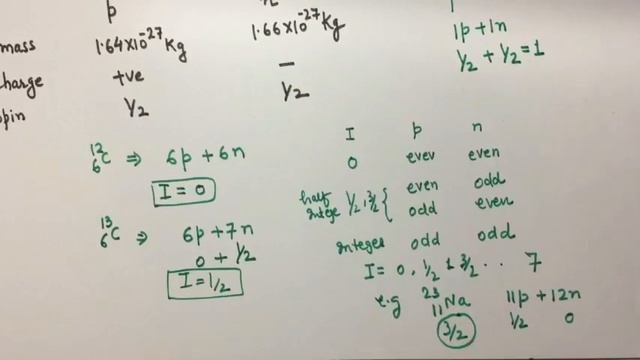 p
mass 1.64x10⁻²⁷Kg 1.66x10⁻²⁷Kg
charge +ve –
spin 1/2 1/2
1p+1n
1/2 + 1/2 = 1
¹²₆C ⇒ 6p + 6n
I = 0
¹³₆C ⇒ 6p + 7n
0 + 1/2
I = 1/2
I p n
0 even even
half intege 1/2, 3/2 { even odd
odd even
integer odd odd
I = 0, 1/2 1 3/2 .. 7
e.g ²³₁₁Na 11p + 12n
3/2 1/2 0